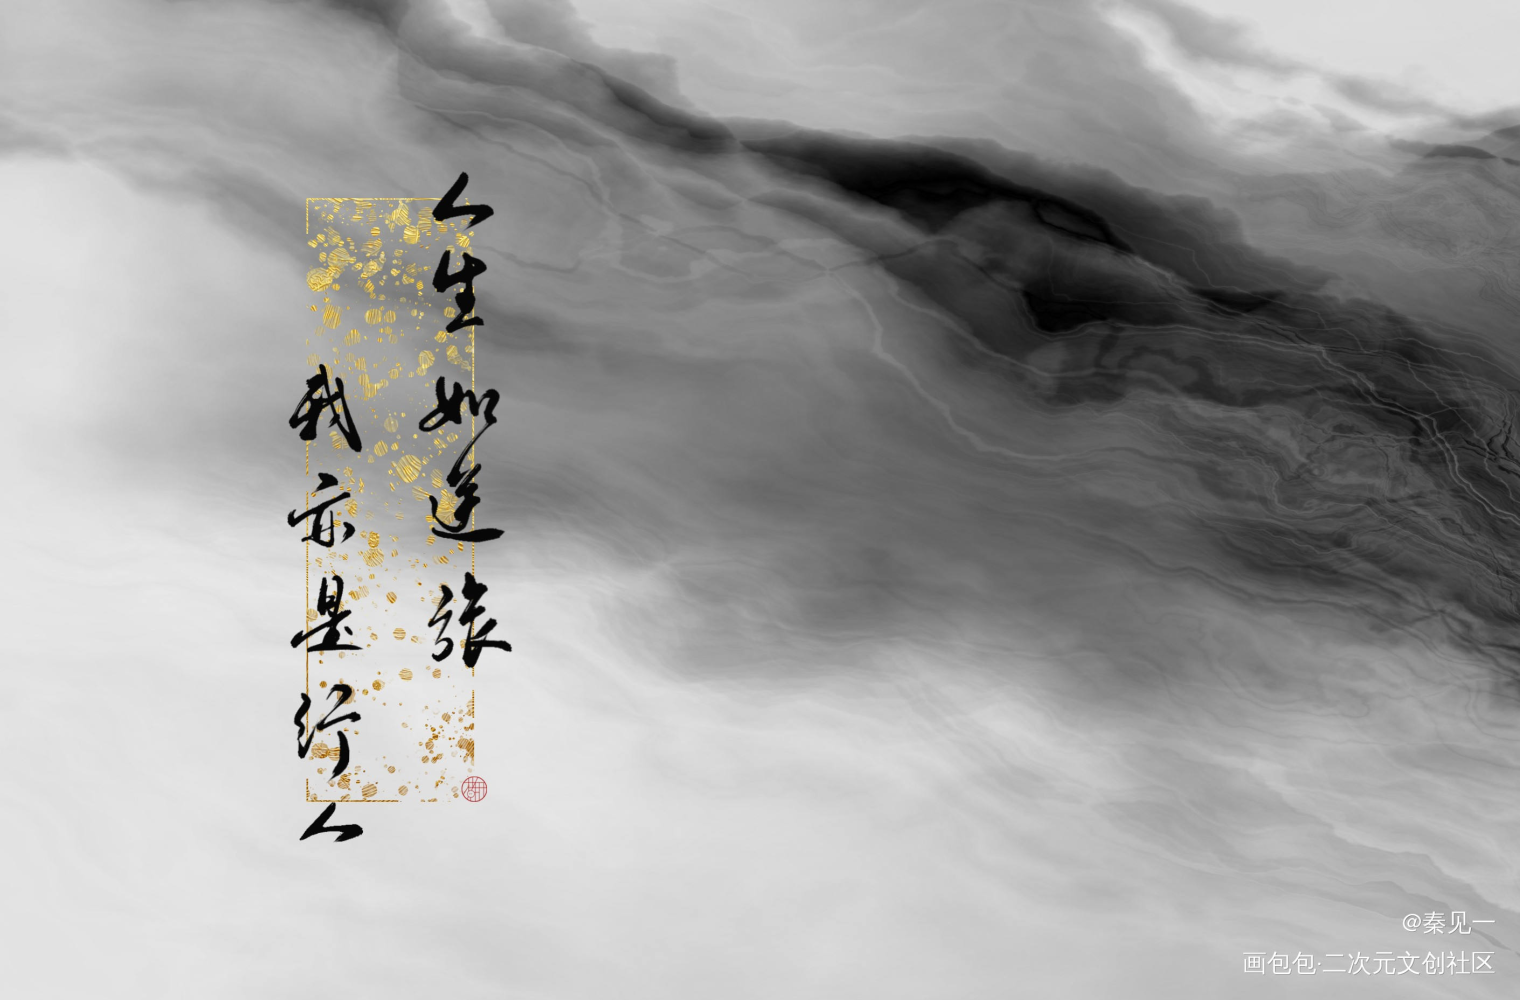 人生如逆旅
我亦是行人
@秦见一
画包包·二次元文创社区